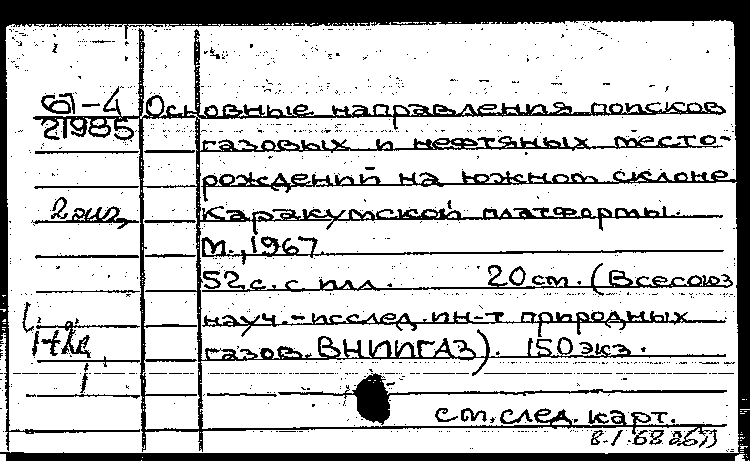 Б1-4 Основные направления поисков
21985
газовых и нефтяных место-
рождений на южном склоне
2 экз, Каракумской платформы.
М., 1967
52 с. с илл. 20 см. (Всесоюз
науч.-исслед. ин-т природных
газов. ВНИИГАЗ). 150 экз.
см. след. карт.